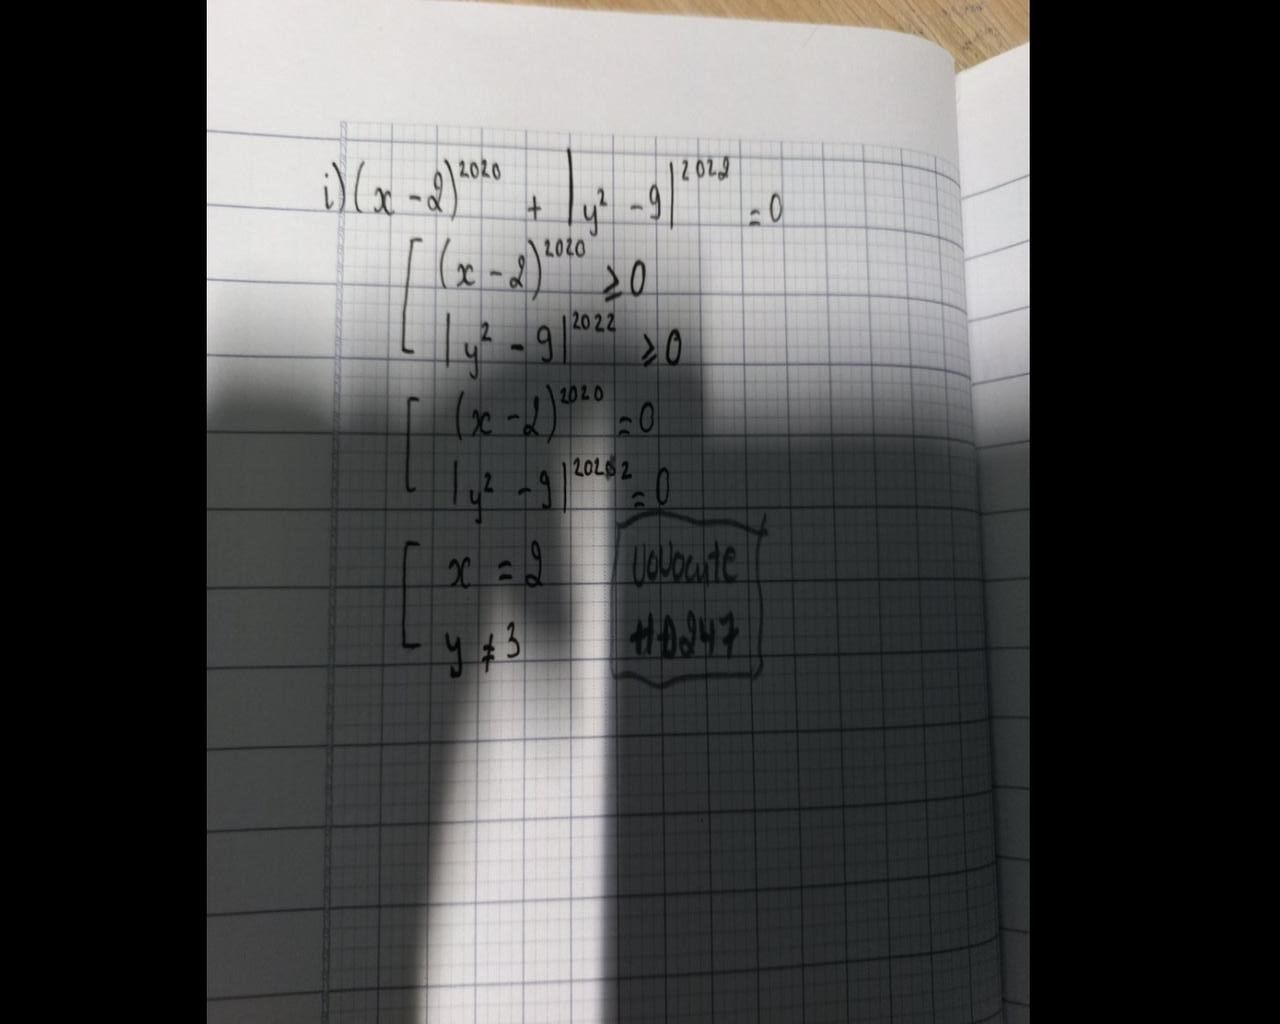 i) (x - 2)^2020 + |y^2 - 9|^2022 = 0
(x - 2)^2020 ⩾ 0
|y^2 - 9|^2022 ⩾ 0
(x - 2)^2020 = 0
|y^2 - 9|^2022 = 0
x = 2
y ≠ 3
HD247